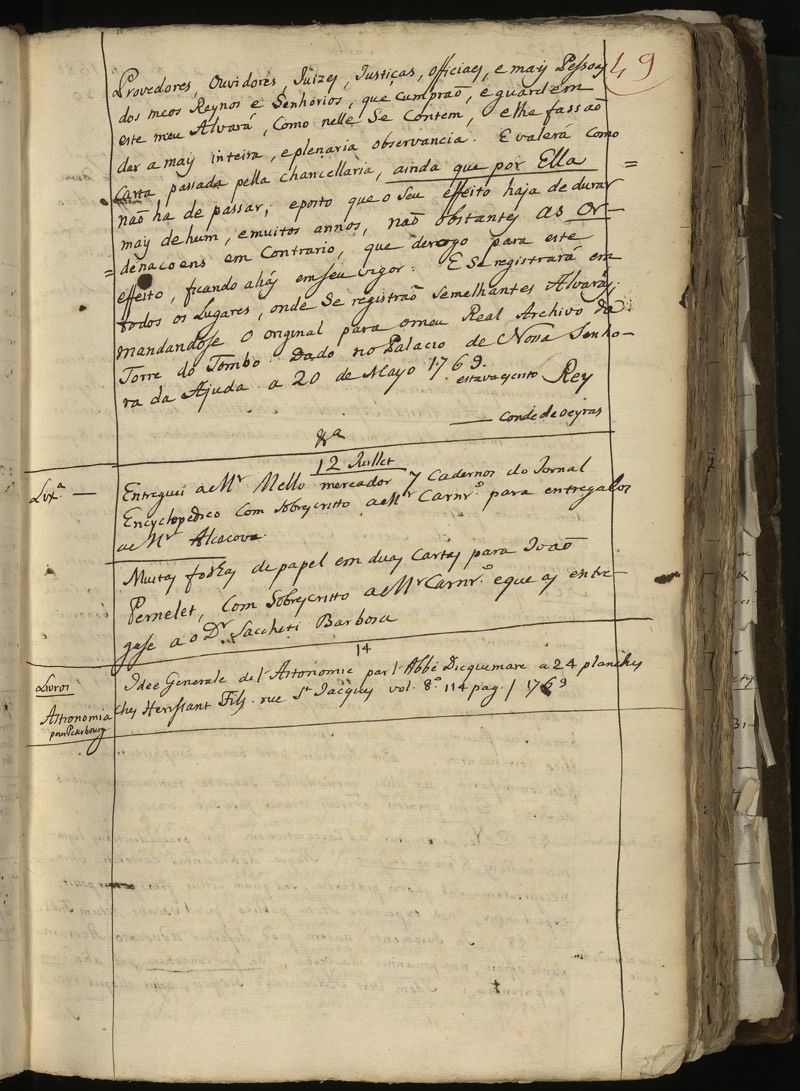 49
Provedores, Ouvidores, Juizes, Justiças, officiaes, e mais Pessoas
dos meos Reynos e Senhorios, que cumprão, e guardem
este meu Alvará, Como nelle Se Contem, e lhe fassaõ
dar a mais inteira, e plenaria observancia. E valerá Como
Carta passada pella Chancellaria, ainda que por Ella =
naõ ha de passar; e posto que o Seu effeito haja de durar
mais de hum, e muitos annos, naõ obstantes as Or-
= denacoens em Contrario, que derogo para este
effeito, ficando aliás em seu vigor. E Se registrará em
todos os Lugares, onde Se registraõ Semelhantes Alvarás;
mandandose o original para o meu Real Archivo da
Torre do Tombo. Dado no Palacio de Nossa Senho-
ra da Ajuda a 20 de Mayo 1769.
estava escrito Rey
Conde de Oeyras
12 Juillet
Lixª. — Entreguei a Mr Mello mercador 7 Cadernos do Jornal
Encyclopedico Com Sobrescritto a Mr Carnrº. para entregalos
a Mr Alcacova.
Muitas folhas de papel em duas Cartas para Joaõ
Pernelet, Com Sobrescritto a Mr Carnrº. e que as entre-
gase a o Dr. Sacheti Barbosa
14
Livros
Idee Generale de l'Astronomie par l'Abbé Dicquemare a 24 planches
Astronomia
Ches Herissant Fils. rue St Jacques vol. 8º. 114 pag. / 1769
pour Peterbourg